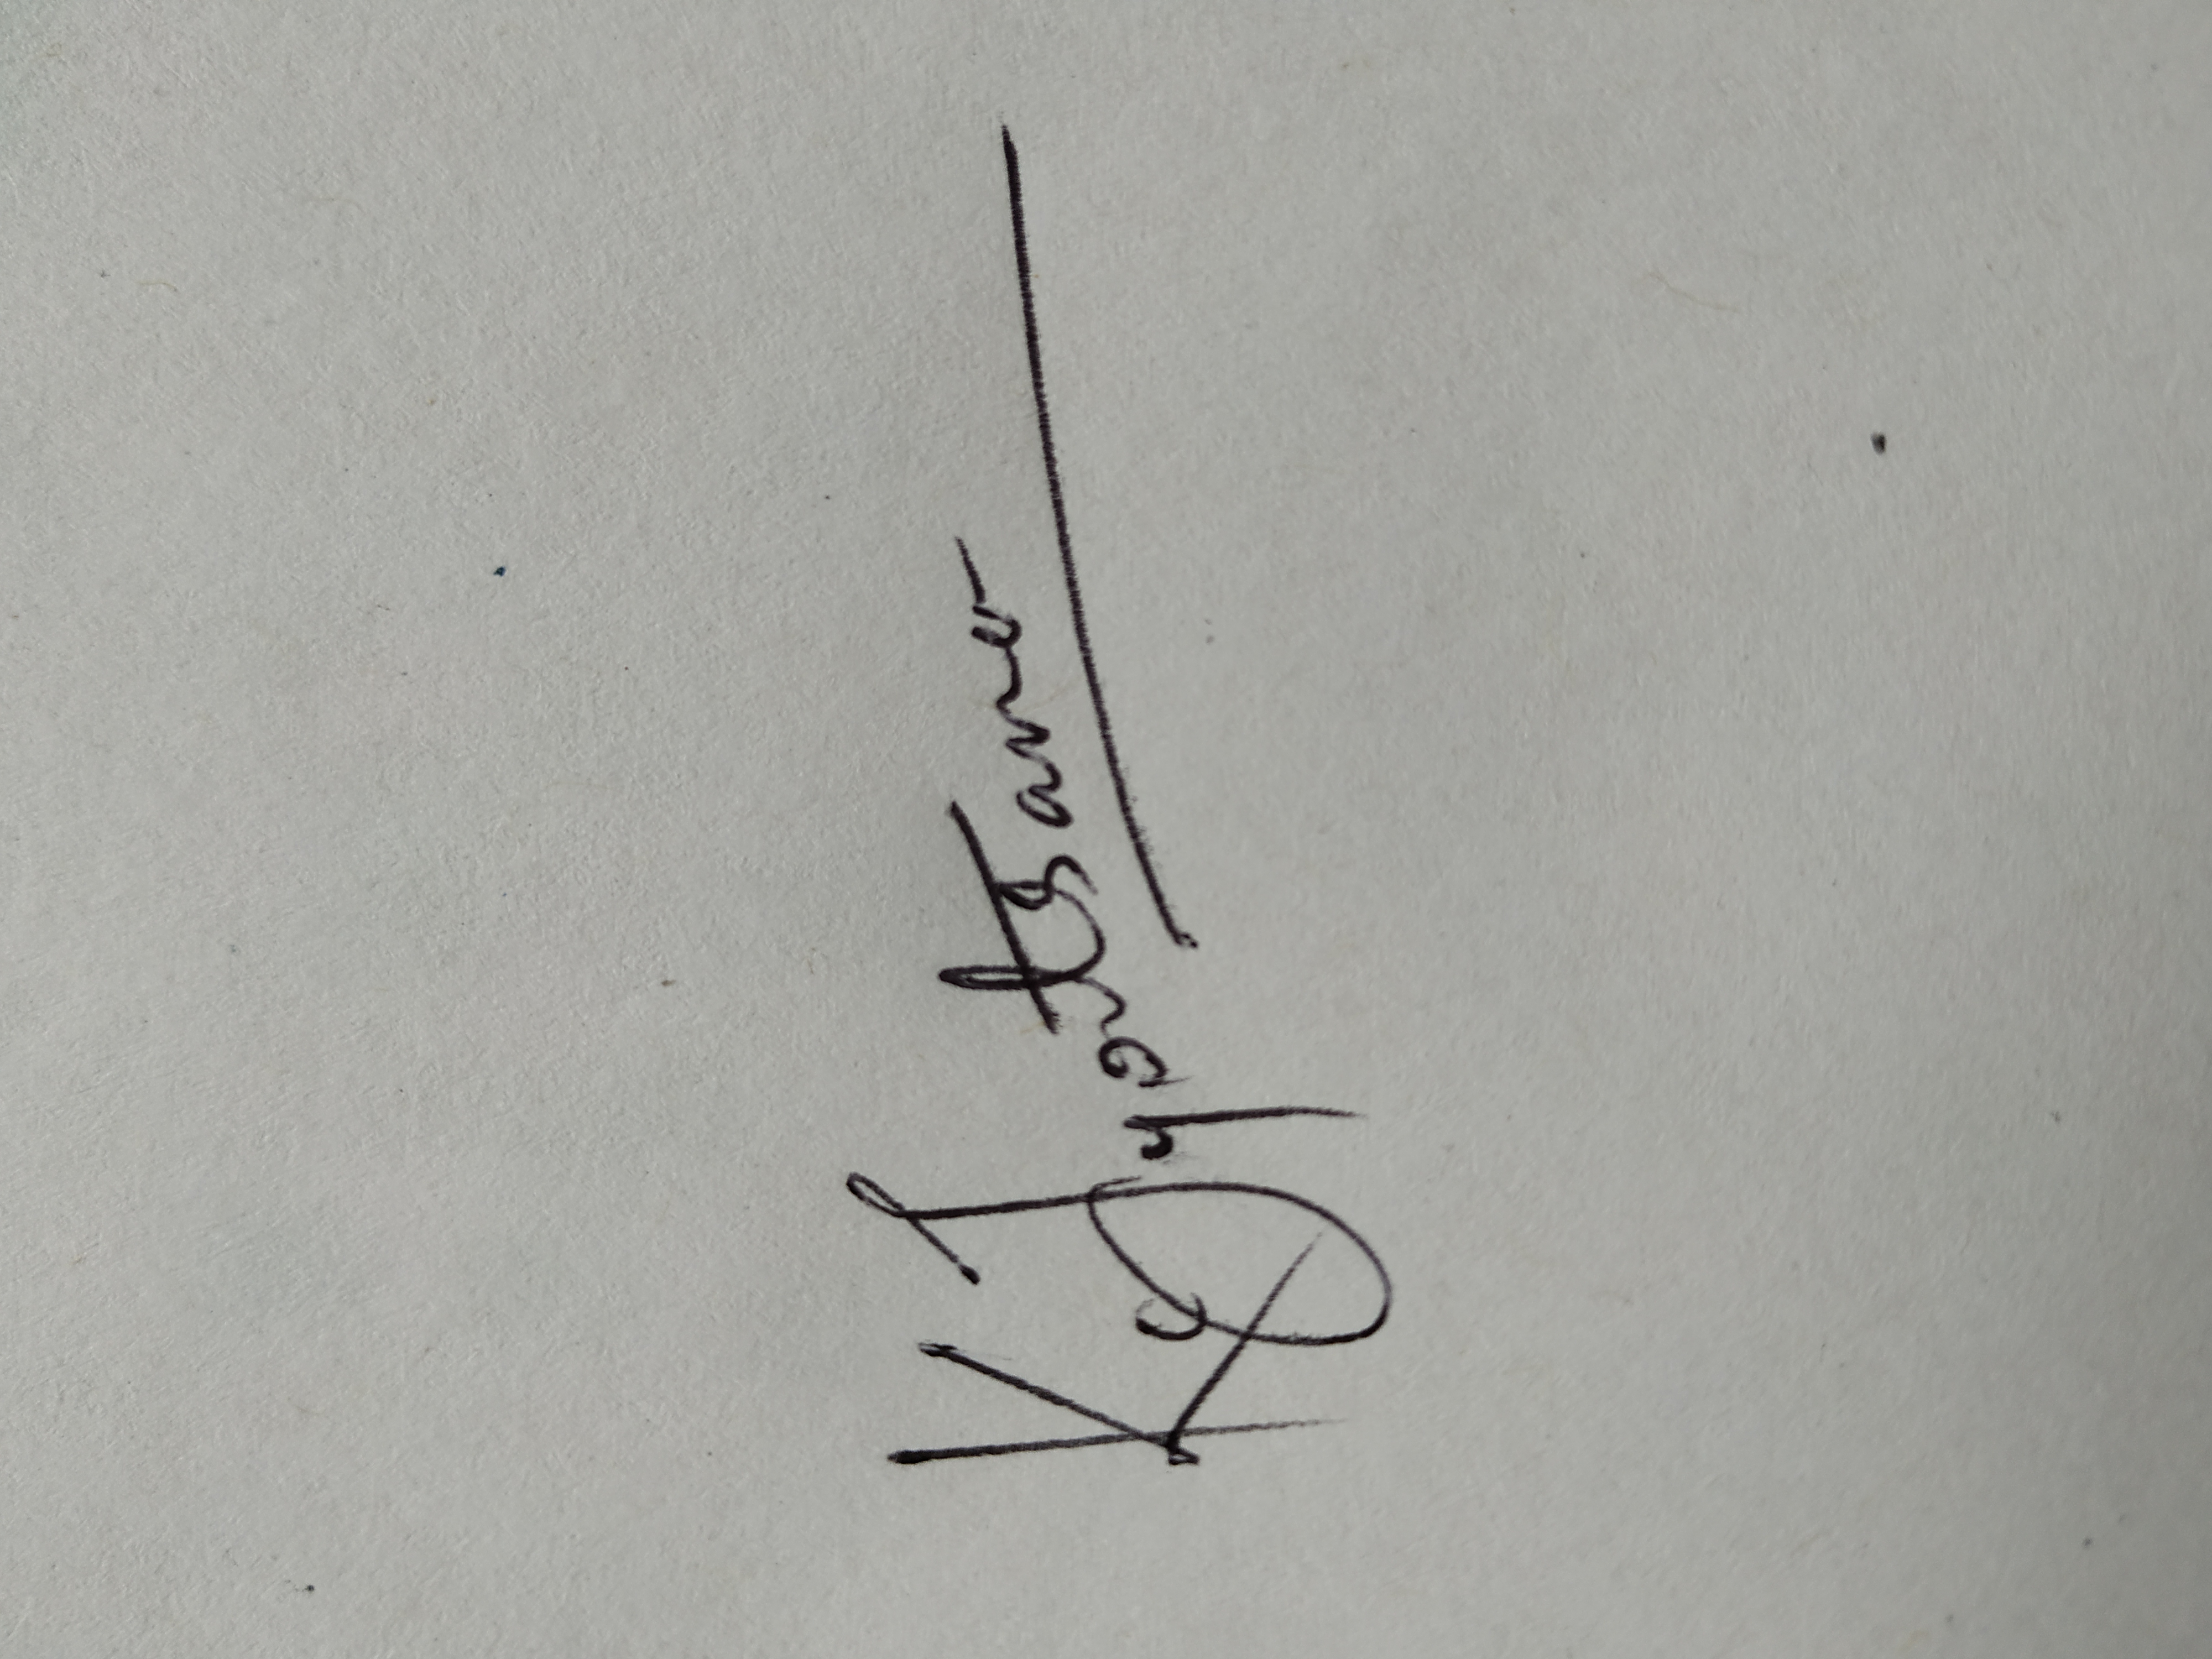 K Jyotsana